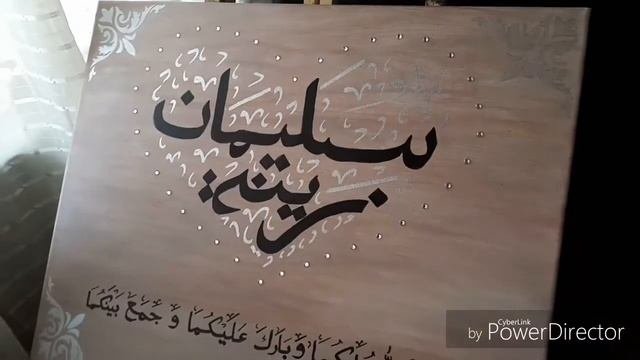 سليمان
زينة
لَكُمَا وَبَارَكَ عَلَيْكُمَا وَ جَمَعَ بَيْنَكُمَا
by CyberLink PowerDirector